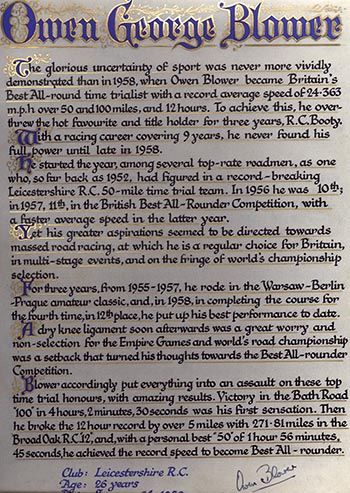 Owen George Blower
The glorious uncertainty of sport was never more vividly
demonstrated than in 1958, when Owen Blower became Britain's
Best All-round time trialist with a record average speed of 24·363
m.p.h over 50 and 100 miles, and 12 hours. To achieve this, he over-
threw the hot favourite and title holder for three years, R.C. Booty.
With a racing career covering 9 years, he never found his
full power until late in 1958.
He started the year, among several top-rate roadmen, as one
who, so far back as 1952, had figured in a record-breaking
Leicestershire R.C. 50-mile time trial team. In 1956 he was 10th;
in 1957, 11th, in the British Best All-Rounder Competition, with
a faster average speed in the latter year.
Yet his greater aspirations seemed to be directed towards
massed road racing, at which he is a regular choice for Britain,
in multi-stage events, and on the fringe of world's championship
selection.
For three years, from 1955-1957, he rode in the Warsaw-Berlin
-Prague amateur classic, and, in 1958, in completing the course for
the fourth time, in 12th place, he put up his best performance to date.
A dry knee ligament soon afterwards was a great worry and
non-selection for the Empire Games and world's road championship
was a setback that turned his thoughts towards the Best All-rounder
Competition.
Blower accordingly put everything into an assault on these top
time trial honours, with amazing results. Victory in the Bath Road
'100' in 4 hours, 2 minutes, 30 seconds was his first sensation. Then
he broke the 12 hour record by over 5 miles with 271·81 miles in the
Broad Oak R.C. '12', and, with a personal best '50' of 1 hour 56 minutes,
45 seconds, he achieved the record speed to become Best All-rounder.
Club: Leicestershire R.C.
Age: 26 years
Owen Blower